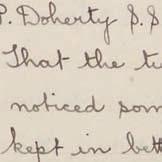 P. Doherty S.S
That the
noticed som
kept in bett